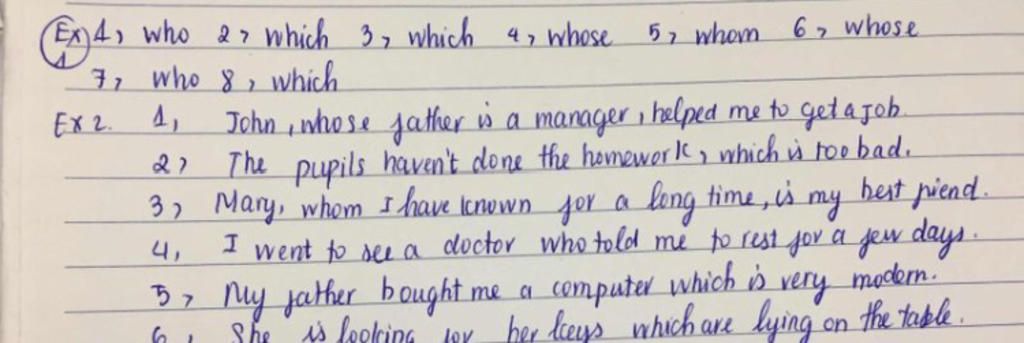 Ex 1 1, who 2, which 3, which 4, whose 5, whom 6, whose
7, who 8, which
Ex 2. 1, John, whose father is a manager, helped me to get a job.
2, The pupils haven't done the homework, which is too bad.
3, Mary, whom I have known for a long time, is my best friend.
4, I went to see a doctor who told me to rest for a few days.
5, My father bought me a computer which is very modern.
6, She is looking for her keys which are lying on the table.